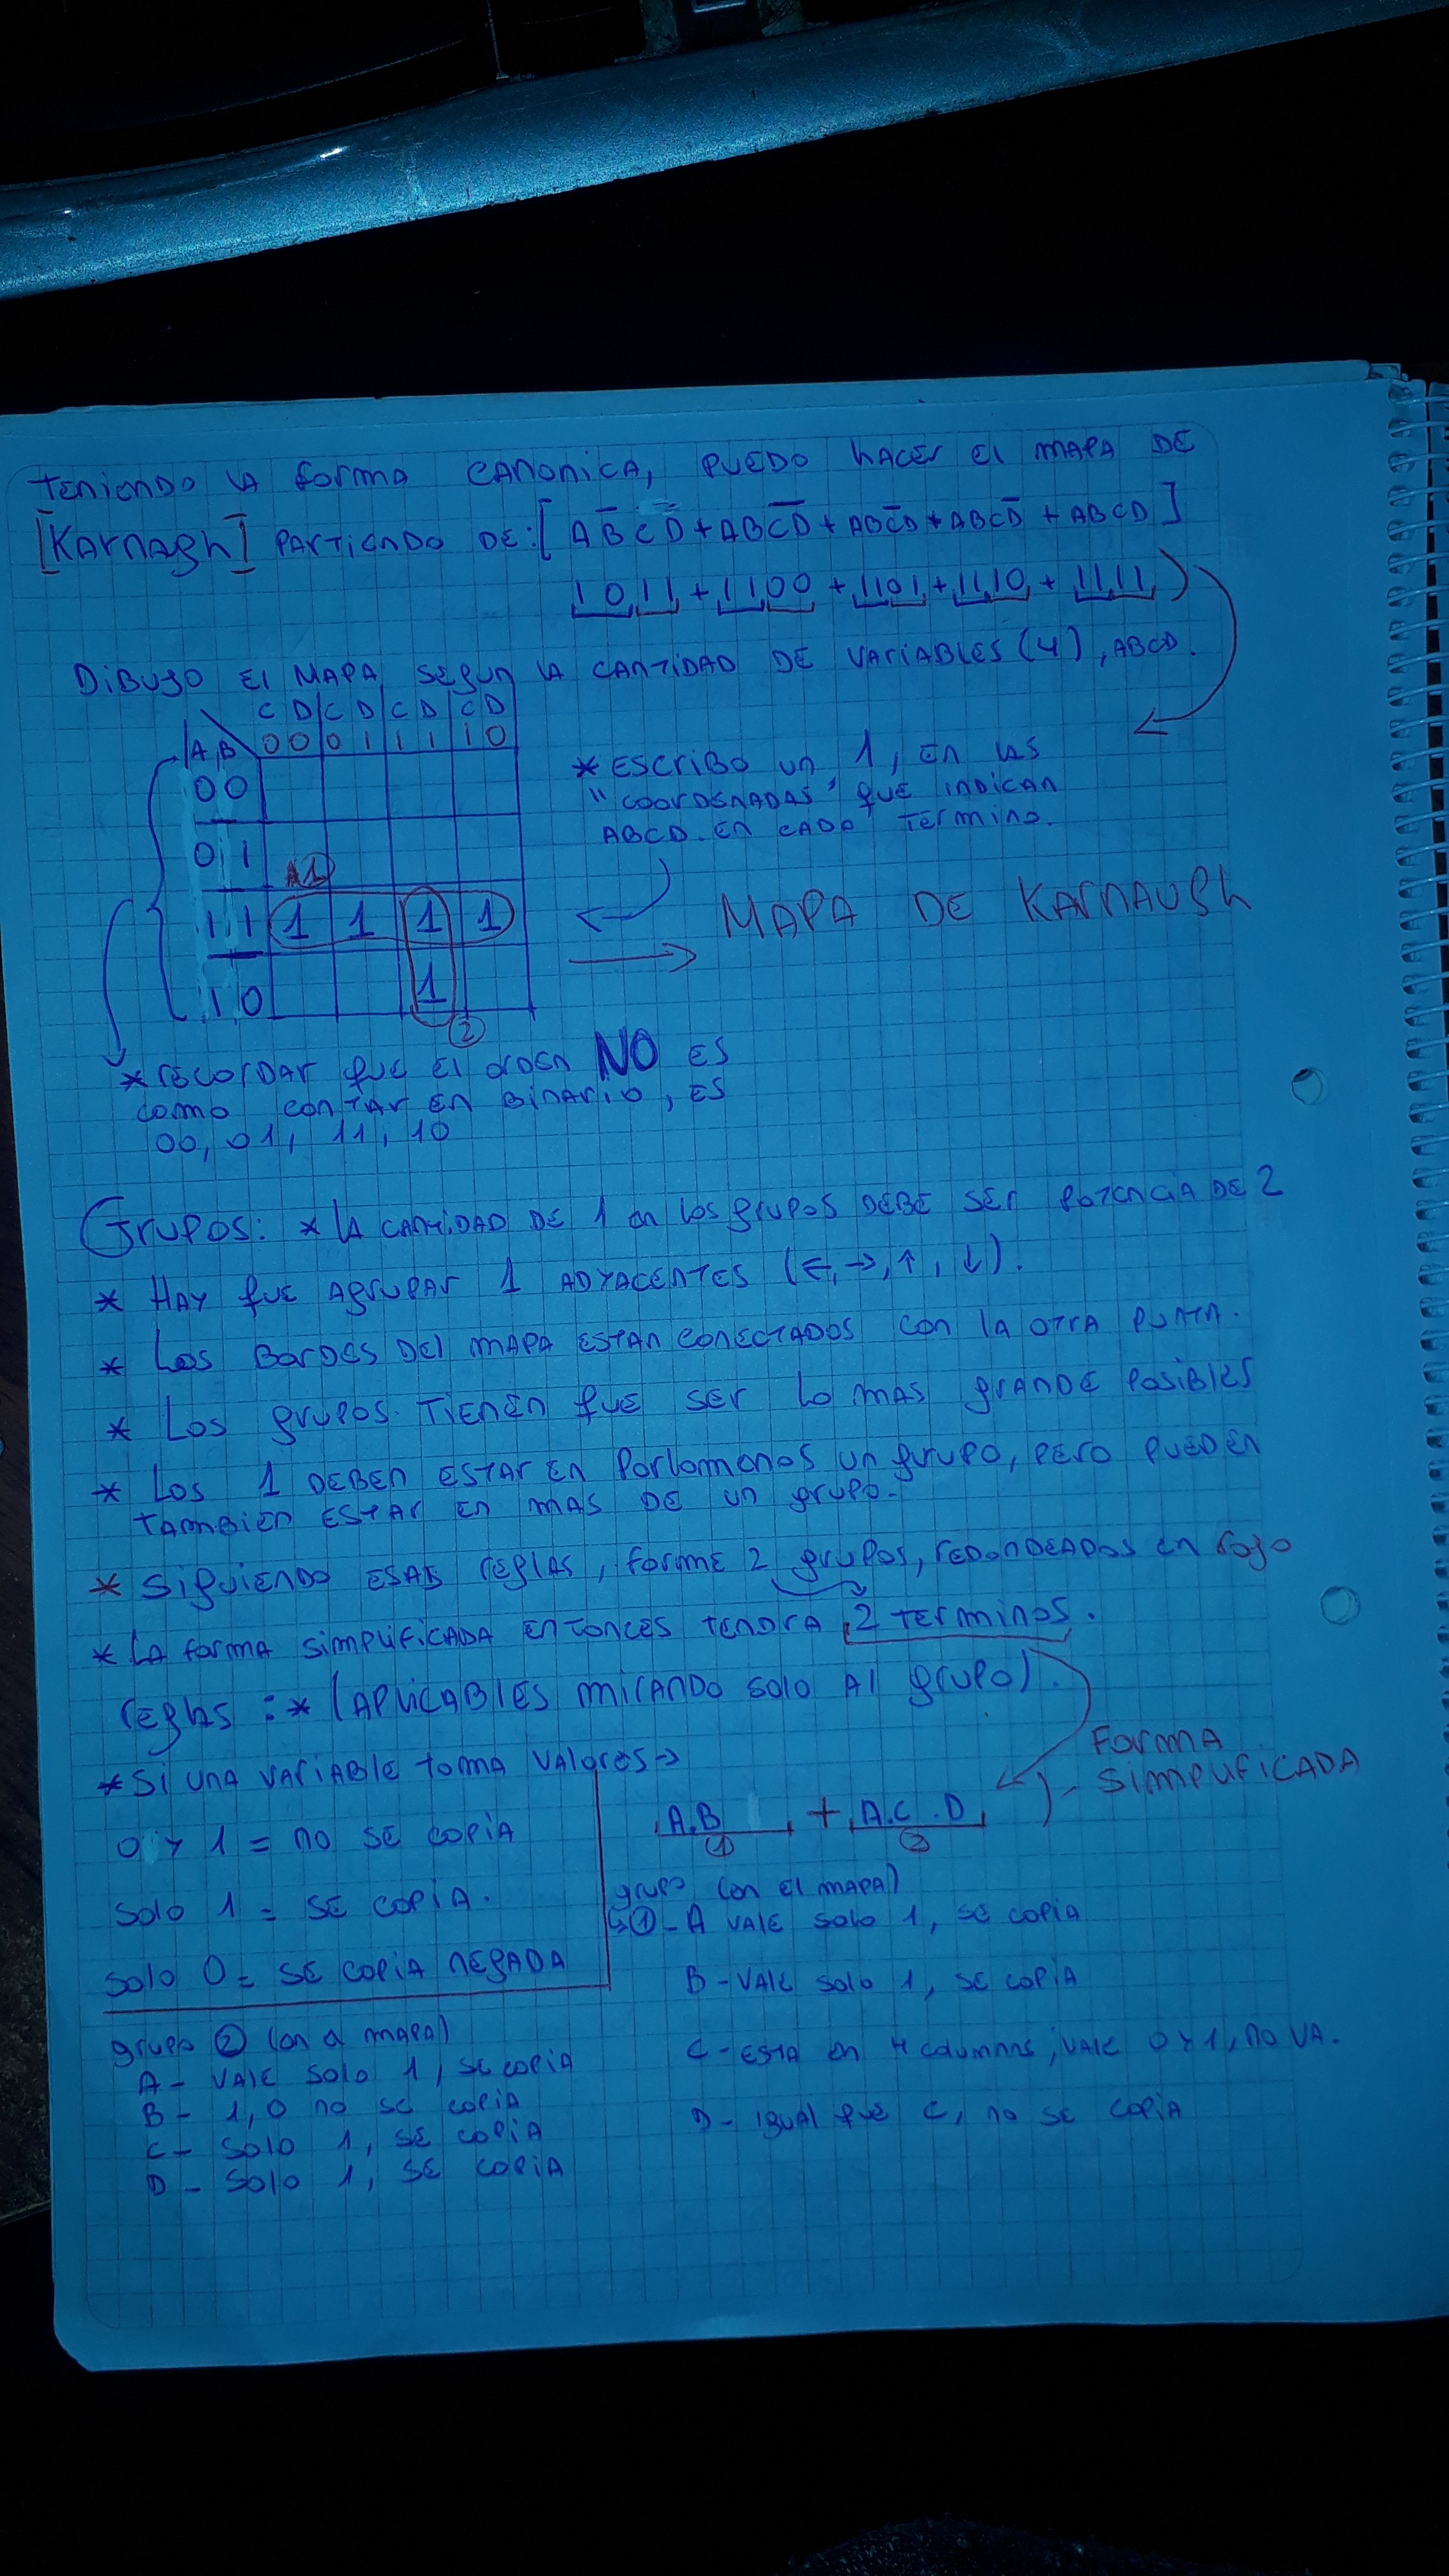 TENIENDO LA forma CANONICA, PUEDO hACER El MAPA DE
[KArnAgh] PARTIENDO DE: [ AB̅CD + ABC̅D̅ + ABC̅D + ABCD̅ + ABCD ]
1011 + 1100 + 1101 + 1110 + 1111
DIBUJO El MAPA SEGUN LA CANTIDAD DE VARIABLES (4), ABCD.
C D C D C D C D
A B 0 0 0 1 1 1 1 0
0 0
* ESCRIBO UN 1, EN LAS
"COORDENADAS" QUE INDICAN
0 1
ABCD EN CADA TERMINO.
1
1 1 1 1 1 1
MAPA DE KARNAUGh
1 0 1
2
* rECORDAR QUE El ORDEN NO ES
COMO CONTAR EN BINARIO, ES
00, 01, 11, 10
GRUPOS: * LA CANTIDAD DE 1 en los grupos DEBE SER POTENCIA DE 2
* HAY QUE AGRUPAR 1 ADYACENTES (←, →, ↑, ↓).
* Los BORDES DEl MAPA ESTAN CONECTADOS CON LA OTRA PUNTA.
* Los grupos TIENEN QUE SER Lo MAS grANDE POSIBLES
* Los 1 DEBEN ESTAR EN Porlomenos un grupo, pero PUEDEN
TAMBIEN ESTAR EN MAS DE UN grupo.
* SIGUIENDO ESAS REGLAS, FORME 2 grupos, REDONDEADOS en rojo
* LA forma SIMPLIFICADA ENTONCES TENDRA 2 TERMINOS.
reglas : * (APLICABLES MIRANDO SOLO Al grupo).
* SI UNA VARIABLE toma VALORES →
FORMA
SIMPLIFICADA
0 y 1 = no SE COPIA
A.B + A.C.D
1 2
SOLO 1 = SE COPIA.
grupo (en El MAPA)
1 - A VALE SOLO 1, SE COPIA
SOLO 0 = SE COPIA NEGADA
B - VALE SOLO 1, SE COPIA
grupo 2 (en el MAPA)
C - ESTA en 4 columnas, VALE 0 y 1, no VA.
A - VALE SOLO 1, SE COPIA
B - 1, 0 no SE COPIA
D - IGUAL QUE C, no SE COPIA
C - SOLO 1, SE COPIA
D - SOLO 1, SE COPIA